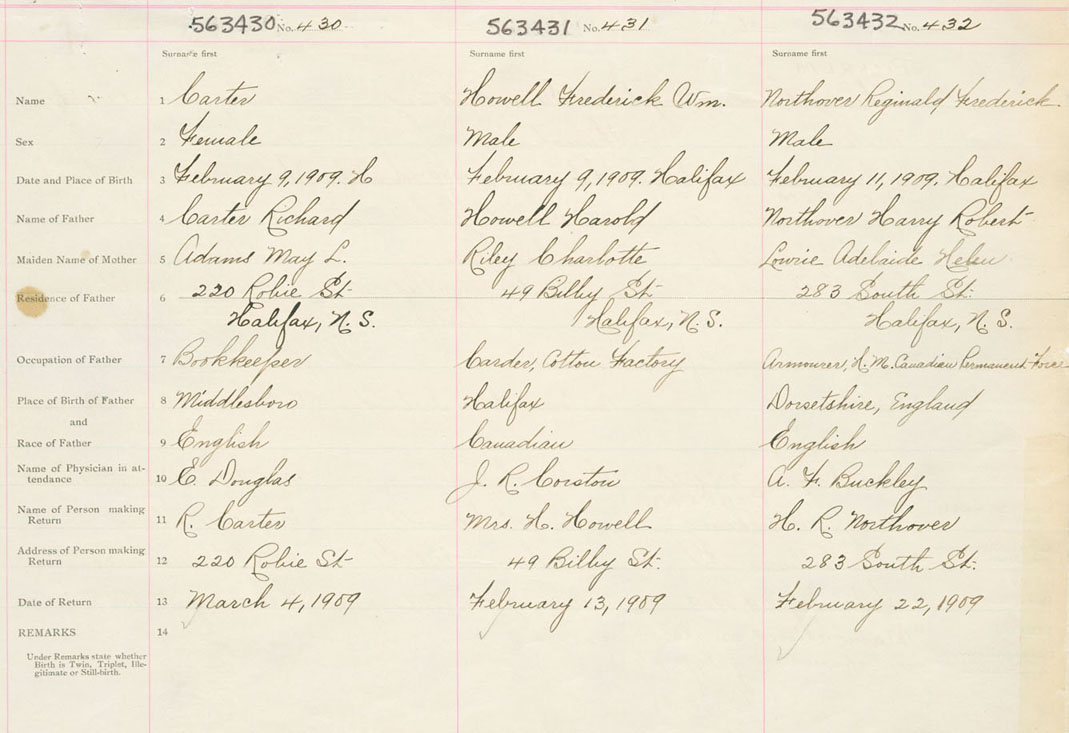 563430 No. 430 563431 No. 431 563432 No. 432
Surname first Surname first Surname first
Name 1 Carter Howell Frederick Wm. Northover Reginald Frederick.
Sex 2 Female Male Male
Date and Place of Birth 3 February 9, 1909. H February 9, 1909. Halifax February 11, 1909. Halifax
Name of Father 4 Carter Richard Howell Harold Northover Harry Robert
Maiden Name of Mother 5 Adams May L. Riley Charlotte Lowrie Adelaide Helen
Residence of Father 6 220 Robie St 49 Bilby St 283 South St.
Halifax, N. S. Halifax, N. S. Halifax, N. S.
Occupation of Father 7 Bookkeeper Carder, Cotton Factory Armourer, H. M. Canadian Permanent Force
Place of Birth of Father 8 Middlesboro Halifax Dorsetshire, England
and
Race of Father 9 English Canadian English
Name of Physician in at-
tendance 10 E. Douglas J. R. Corston A. F. Buckley
Name of Person making
Return 11 R. Carter Mrs. H. Howell H. R. Northover
Address of Person making
Return 12 220 Robie St 49 Bilby St. 283 South St.
Date of Return 13 March 4, 1909 February 13, 1909 February 22, 1909
REMARKS 14
Under Remarks state whether
Birth is Twin, Triplet, Ille-
gitimate or Still-birth.